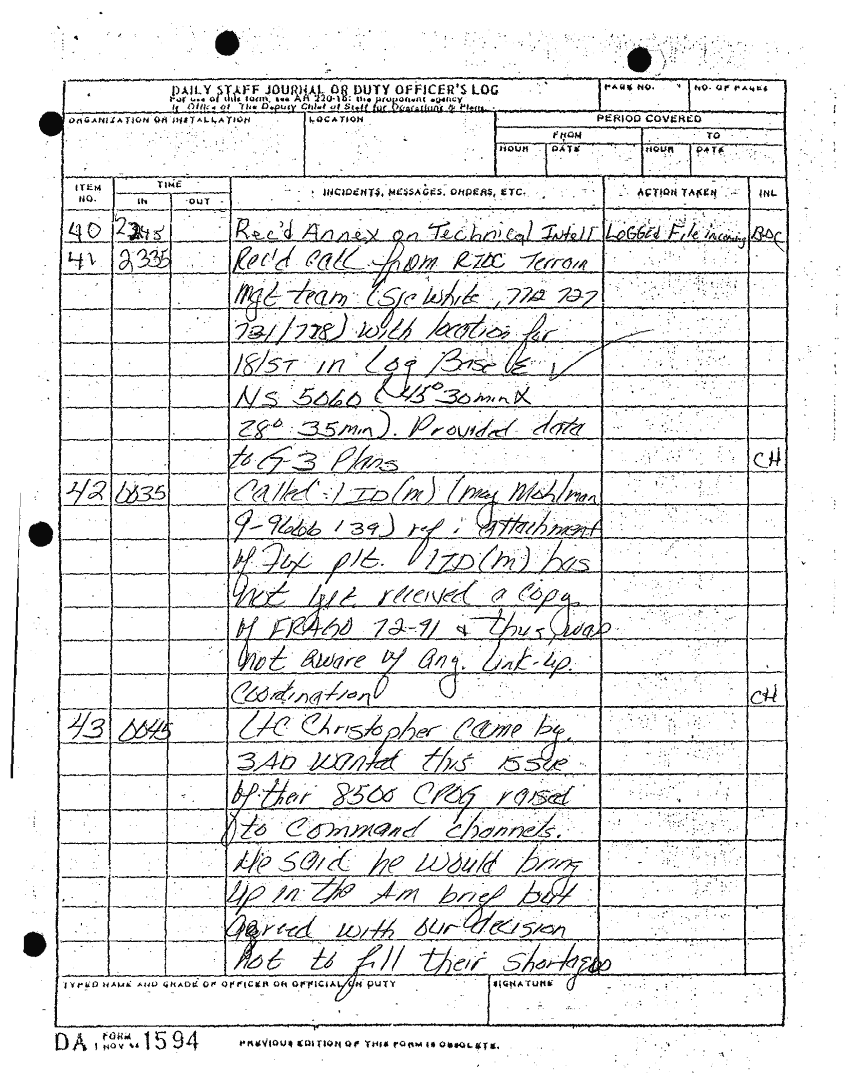 DAILY STAFF JOURNAL OR DUTY OFFICER'S LOG
For use of this form, see AR 220-15; the proponent agency
is Office of The Deputy Chief of Staff for Operations & Plans.
PAGE NO.
NO. OF PAGES
ORGANIZATION OR INSTALLATION
LOCATION
PERIOD COVERED
FROM
TO
HOUR
DATE
HOUR
DATE
ITEM NO.
TIME
IN
OUT
INCIDENTS, MESSAGES, ORDERS, ETC.
ACTION TAKEN
INL
40 2245 Rec'd Annex on Technical Intell Logged File incoming
41 2335 Rec'd call from RTOC Terrain
Mgt team (SJC White, 772 727
731/778) with location for
18/ST in Log Base E ✓
NS 5060 (45° 30min X
28° 35min). Provided data
to G-3 Plans CH
42 0035 Called 1 ID(m) (maj Mohlman
9-9666 139) ref: attachment
of Fox plt. 1ID(m) has
not yet received a copy
of FRAGO 72-91 & thus was
not aware of any link-up
coordination CH
43 0045 LTC Christopher came by.
3AD wanted this issue
of their 8500 CPOG raised
to command channels.
He said he would bring
up in the Am brief but
agreed with our decision
not to fill their shortages
TYPED NAME AND GRADE OF OFFICER OR OFFICIAL ON DUTY
SIGNATURE
DA FORM 1 NOV 1594
PREVIOUS EDITION OF THIS FORM IS OBSOLETE.